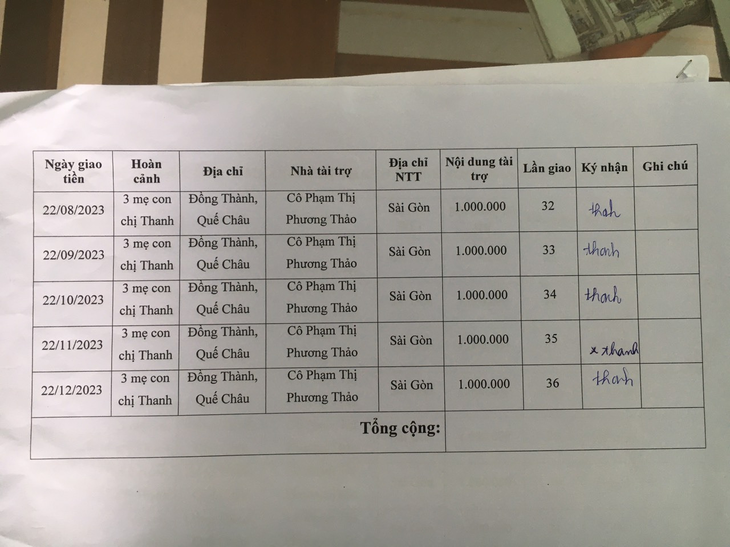 Ngày giao tiền Hoàn cảnh Địa chỉ Nhà tài trợ Địa chỉ NTT Nội dung tài trợ Lần giao Ký nhận Ghi chú
22/08/2023 3 mẹ con chị Thanh Đồng Thành, Quế Châu Cô Phạm Thị Phương Thảo Sài Gòn 1.000.000 32 thah
22/09/2023 3 mẹ con chị Thanh Đồng Thành, Quế Châu Cô Phạm Thị Phương Thảo Sài Gòn 1.000.000 33 thanh
22/10/2023 3 mẹ con chị Thanh Đồng Thành, Quế Châu Cô Phạm Thị Phương Thảo Sài Gòn 1.000.000 34 thanh
22/11/2023 3 mẹ con chị Thanh Đồng Thành, Quế Châu Cô Phạm Thị Phương Thảo Sài Gòn 1.000.000 35 x thanh
22/12/2023 3 mẹ con chị Thanh Đồng Thành, Quế Châu Cô Phạm Thị Phương Thảo Sài Gòn 1.000.000 36 thanh
Tổng cộng: